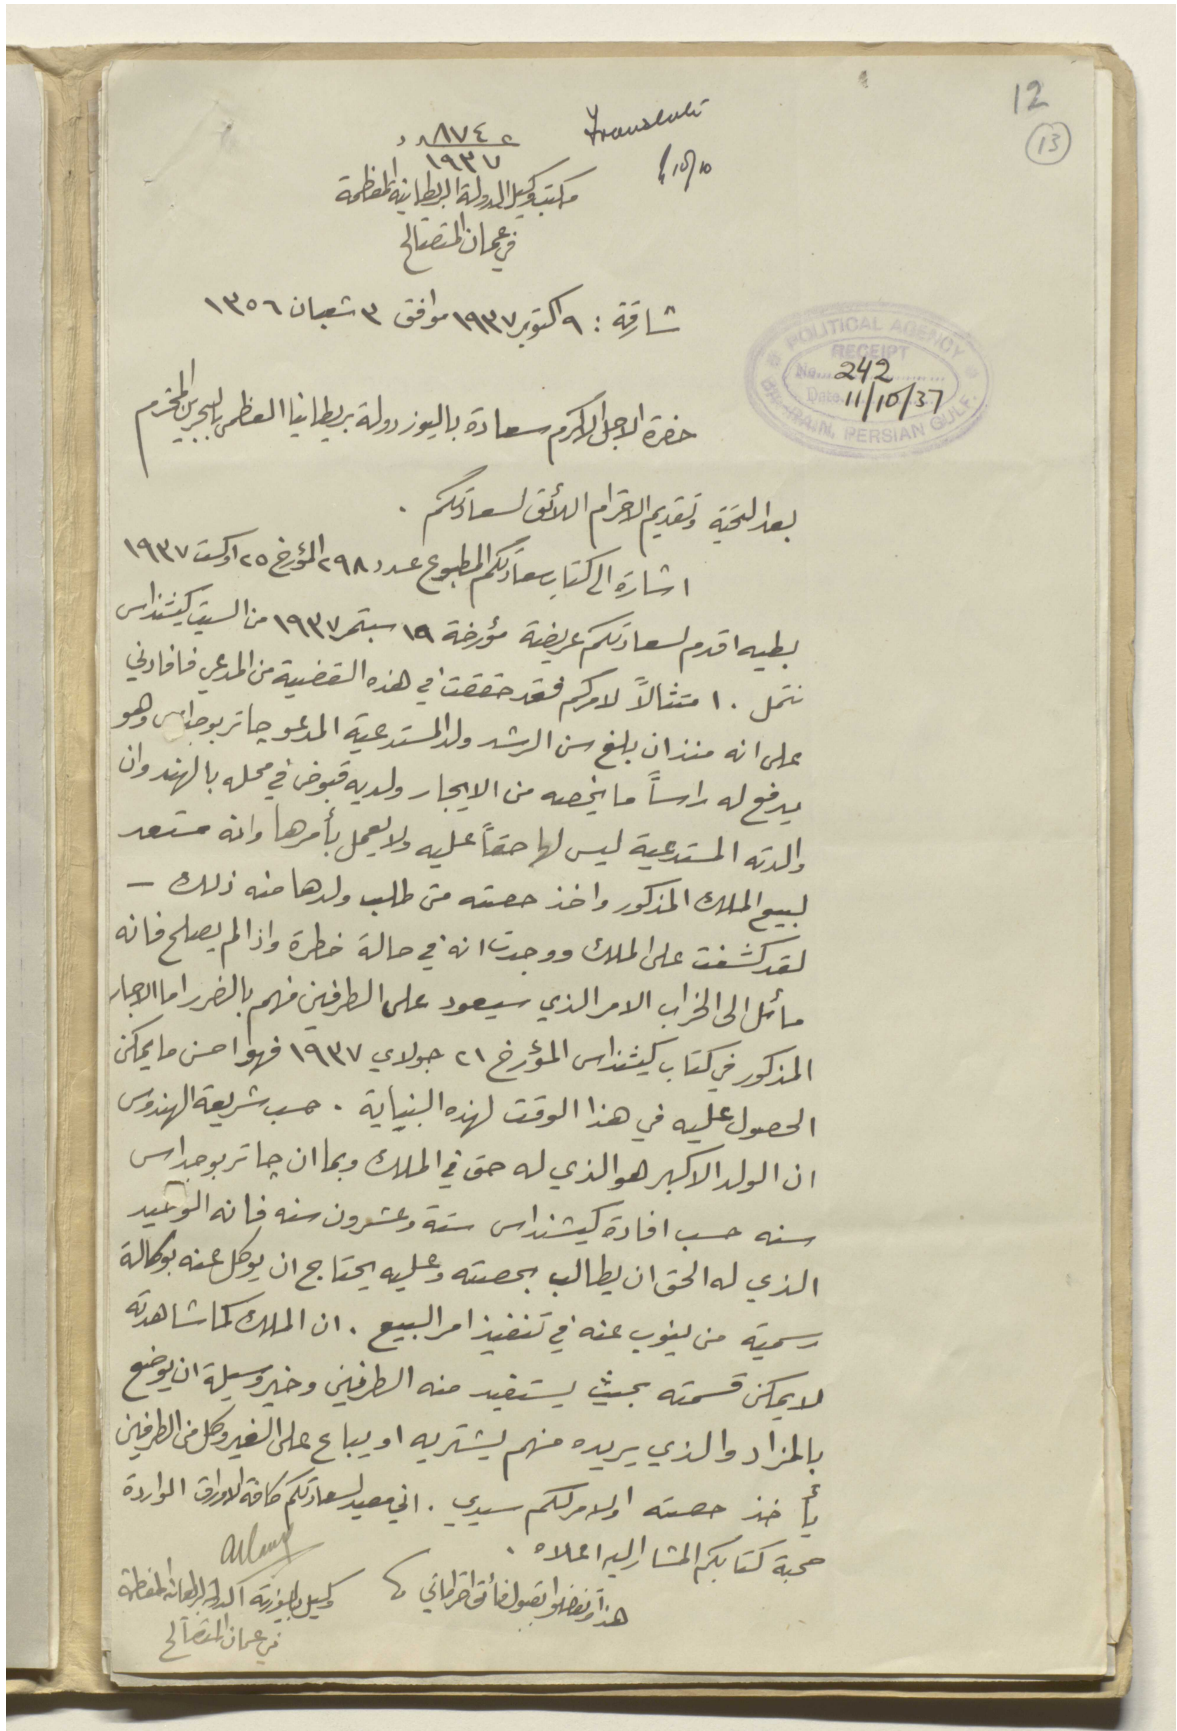 12
13
Translate
10/10
عدد ٨٧٤
١٩٣٧
مكتب وكيل الدولة البريطانية المعظمة
في عمان المتصالح
شارقة : ٩ اكتوبر ١٩٣٧ موافق ٣ شعبان ١٣٥٦
POLITICAL AGENCY
RECEIPT
No. 242
Date 11/10/37
BAHRAIN, PERSIAN GULF.
حضرة الاجل الاكرم سعادة باليوز دولة بريطانيا العظمى بالبحرين المحترم
بعد التحية وتقديم الاحترام اللائق لسعادتكم .
اشارة الى كتاب سعادتكم المطبوع عدد ٢٩٨ المؤرخ ٢٥ اوكست ١٩٣٧
بطيه اقدم لسعادتكم عريضة مؤرخة ١٩ سبتمبر ١٩٣٧ من السيت كيشنداس
نتمل . امتثالاً لامركم فقد حققت في هذه القضية من المدعي فافادني
على انه منذ ان بلغ سن الرشد ولد المستدعية المدعو چاتربوجداس وهو
يدفع له راساً ما يخصه من الايجار ولديه قبوض في محله بالهند وان
والدته المستدعية ليس لها حقاً عليه ولا يعمل بأمرها وانه مستعد
لبيع الملك المذكور واخذ حصته متى طلب ولدها منه ذلك –
لقد كشفت على الملك ووجدت انه في حالة خطرة واذا لم يصلح فانه
مائل الى الخراب الامر الذي سيعود على الطرفين منهم بالضرر اما الايجار
المذكور في كتاب كيشنداس المؤرخ ٢١ جولاي ١٩٣٧ فهو احسن ما يمكن
الحصول عليه في هذا الوقت لهذه البنياية . حسب شريعة الهندوس
ان الولد الاكبر هو الذي له حق في الملك وبما ان چاتربوجداس
سنه حسب افادة كيشنداس ستة وعشرون سنه فانه الوحيد
الذي له الحق ان يطالب بحصته وعليه يحتاج ان يوكل عنه بوكالة
رسمية من ينوب عنه في تنفيذ امر البيع . ان الملك كما شاهدته
لا يمكن قسمته بحيث يستفيد منه الطرفين وخير وسيلة ان يوضع
بالمزاد والذي يريده منهم يشتريه او يباع على الغير وكل من الطرفين
يأخذ حصته او لامر لكم سيدي . اني معيد لسعادتكم كافة الاوراق الواردة
صحبة كتابكم المشار اليه اعلاه .
هذا وتفضلوا بقبول فائق احتراماتي
وكيل باليوزية الدولة البريطانية المعظمة
في عمان المتصالح